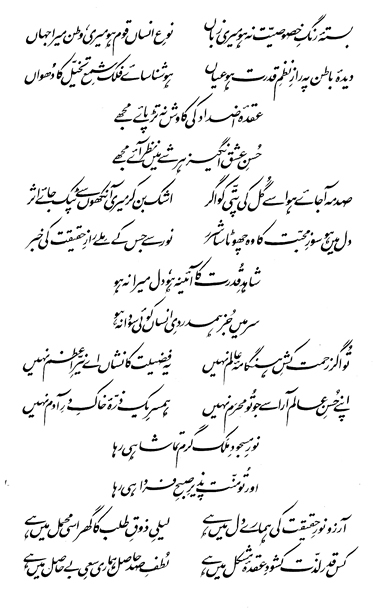 بستۂ رنگِ خصوصیّت نہ ہو میری زباں نوعِ انساں قوم ہو میری، وطن میرا جہاں
دیدۂ باطن پہ رازِ نظمِ قدرت ہو عیاں ہو شناسائے فلک شمعِ تخیّل کا دھواں
عقدۂ اضداد کی کاوش نہ تڑپائے مجھے
حُسنِ عشق انگیز ہر شے میں نظر آئے مجھے
صدمہ آ جائے ہوا سے گُل کی پتّی کو اگر اشک بن کر میری آنکھوں سے ٹپک جائے اثر
دل میں ہو سوزِ محبّت کا وہ چھوٹا سا شرر نور سے جس کے ملے رازِ حقیقت کی خبر
شاہدِ قُدرت کا آئینہ ہو، دل میرا نہ ہو
سر میں جُز ہمدردیِ انساں کوئی سودا نہ ہو
تُو اگر زحمت کشِ ہنگامۂ عالم نہیں یہ فضیلت کا نشاں اے نیّرِ اعظم نہیں
اپنے حُسنِ عالم آرا سے جو تُو محرم نہیں ہمسرِ یک ذرّۂ خاکِ درِ آدم نہیں
نورِ مسجودِ ملَک گرمِ تماشا ہی رہا
اور تُو منّت پذیرِ صبحِ فردا ہی رہا
آرزو نورِ حقیقت کی ہمارے دل میں ہے لیلیِ ذوقِ طلب کا گھر اسی محمل میں ہے
کس قدر لذّت کشودِ عقدۂ مشکل میں ہے لُطفِ صد حاصل ہماری سعیِ بے حاصل میں ہے